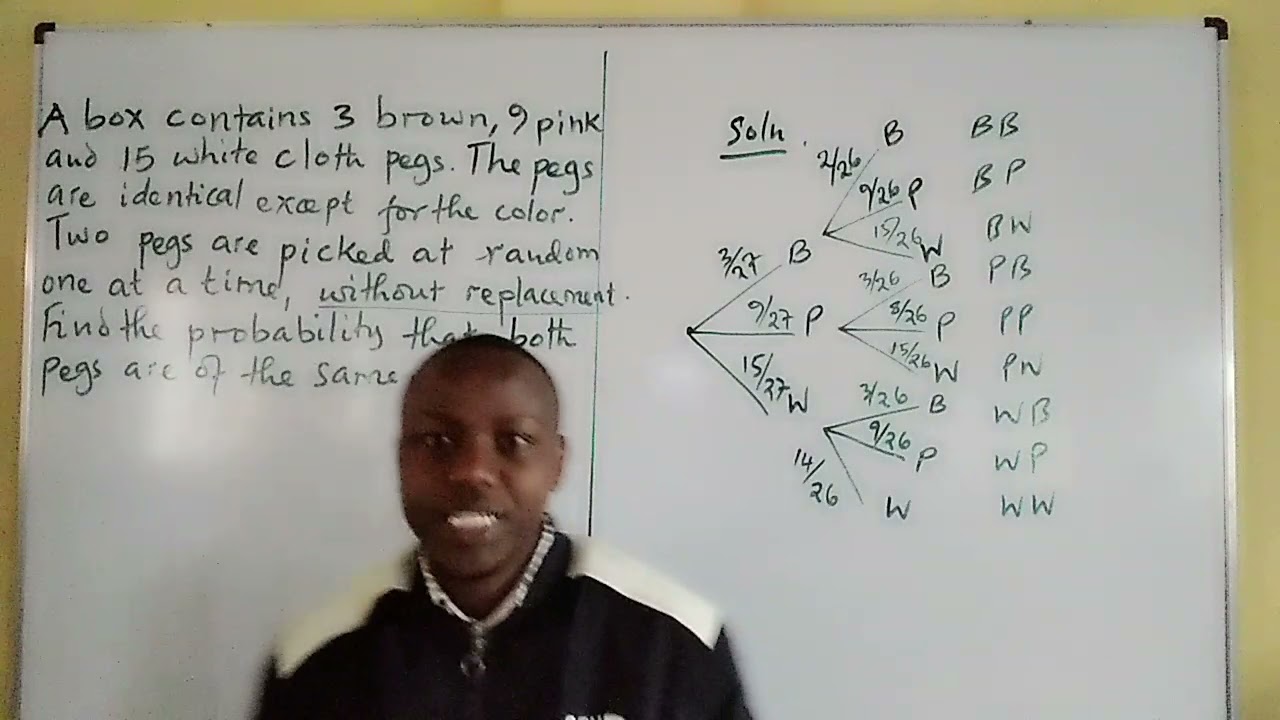 A box contains 3 brown, 9 pink
and 15 white cloth pegs. The pegs
are identical except for the color.
Two pegs are picked at random
one at a time, without replacement.
Find the probability that both
pegs are of the same
Soln.
3/27 B
9/27 P
15/27 W
2/26 B
9/26 P
15/26 W
3/26 B
8/26 P
15/26 W
3/26 B
9/26 P
14/26 W
BB
BP
BW
PB
PP
PW
WB
WP
WW